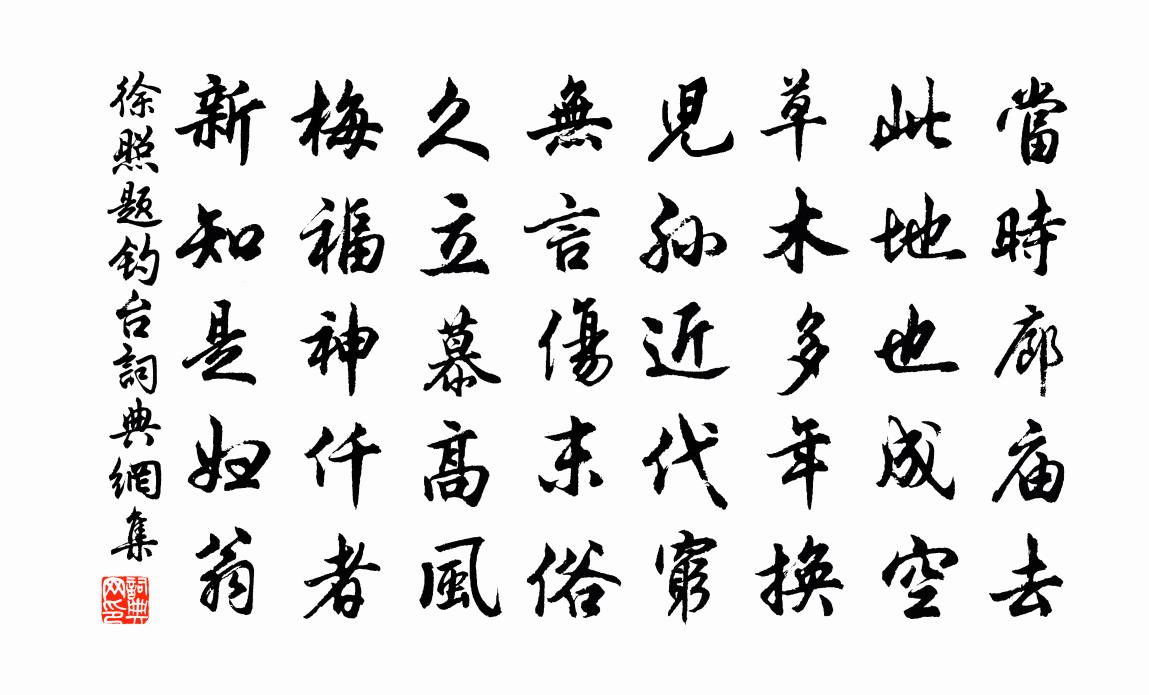 當時廊庙去
此地也成空
草木多年換
児孫近代窮
無言傷末俗
久立慕高風
梅福神仟者
新知是妇翁
徐照题钓台詞典網集
詞典网印